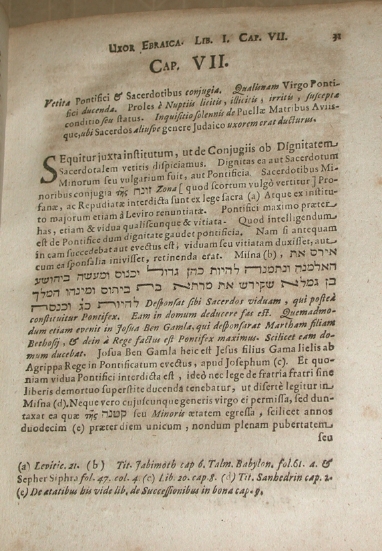 UXOR EBRAICA. LIB. I. CAP. VII. 31
CAP. VII.
Vetita Pontifici & Sacerdotibus conjugia. Qualisnam Virgo Ponti-
fici ducenda. Proles è Nuptiis licitis, illicitis, irritis, susceptæ
conditio seu status. Inquisitio solennis de Puellæ Matribus Aviis-
que, ubi Sacerdos aliusve genere Judaico uxorem erat ducturus.
SEquitur juxta institutum, ut de Conjugiis ob Dignitatem
Sacerdotalem vetitis dispiciamus. Dignitas ea aut Sacerdotum
Minorum seu vulgarium fuit, aut Pontificia. Sacerdotibus Mi-
noribus conjugia זונה Zona [ quod scortum vulgò vertitur ] Pro-
hac, ac Repudiatæ interdicta sunt ex lege sacra (a) Atque ex institu-
to majorum etiam à Leviro renuntiatæ. Pontifici maximo præter
has, etiam & vidua qualiscunque & vitiata. Quod intelligendum
est de Pontifice dum dignitate gaudet pontificia. Nam si antequam
in eam succedebat aut evectus est, viduam seu vitiatam duxisset, aut
cum ea sponsalia inivisset, retinenda erat. Misna (b), אירס את
האלמנה ונתמנה להיות כהן גדול יכנוס ומעשה ביהושע
בן גמלא שקידש את מרתא בת ביתוס ומינהו המלך
להיות כג וכנסה Desponsat sibi Sacerdos viduam, qui posteà
constituitur Pontifex. Eam in domum deducere fas est. Quemadmo-
dum etiam evenit in Josua Ben Gamla, qui desponsarat Martham filiam
Bethosy, & dein à Rege factus est Pontifex maximus. Scilicet eam do-
mum ducebat. Josua Ben Gamla heic est Jesus filius Gamalielis ab
Agrippa Rege in Pontificatum evectus, apud Josephum (c). Et quo-
niam vidua Pontifici interdicta est, ideò nec lege de fratria fratri sine
liberis demortuo superstite ducenda tenebatur, ut disertè legitur in
Misna (d). Neque vero cujuscunque generis virgo ei permissa, sed dun-
taxat ea quæ קטנה seu Minoris ætatem egressa, scilicet annos
duodecim (e) præter diem unicum, nondum plenam pubertatem
seu
(a) Levitic. 21. (b) Tit. Jabimoth cap 6. Talm. Babylon. fol. 61. a. &
Sepher Siphra fol. 47. col. 4. (c) Lib 20. cap. 8. (d) Tit. Sanhedrin cap. 2.
(e) De ætatibus his vide lib. de Successionibus in bona cap. 9.